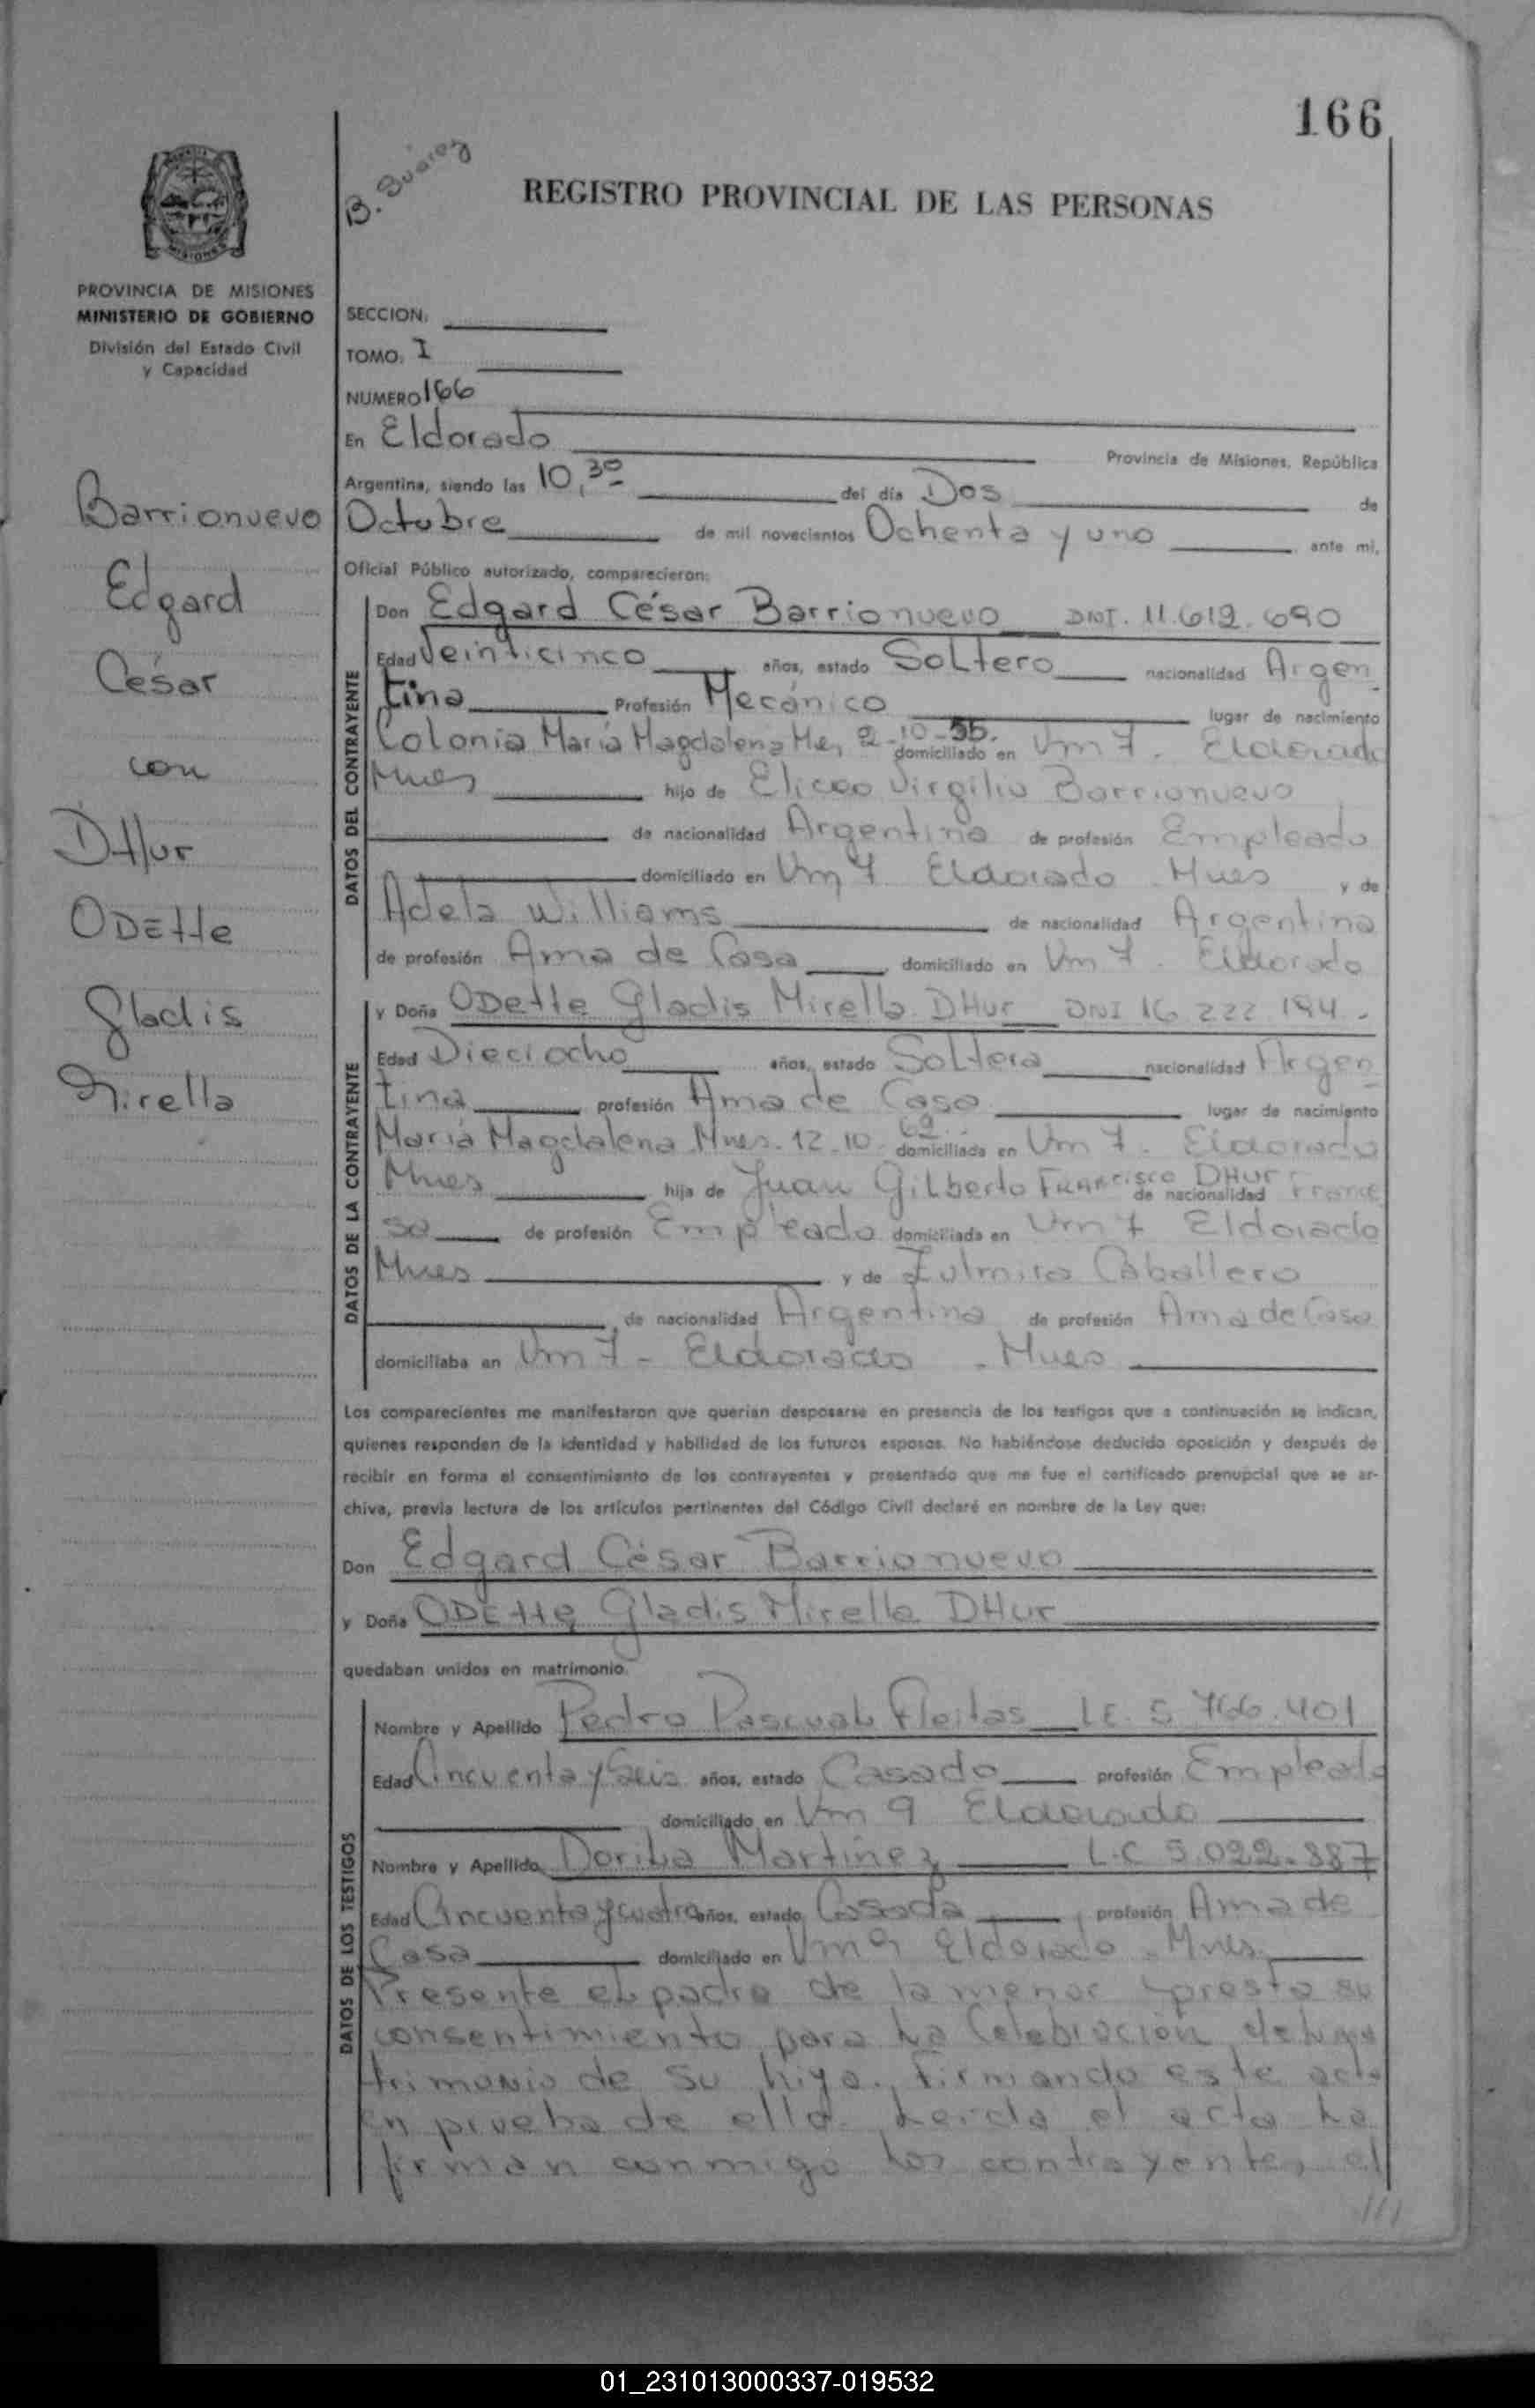 166
B. Suárez
REGISTRO PROVINCIAL DE LAS PERSONAS
MISIONES
PROVINCIA DE MISIONES
MINISTERIO DE GOBIERNO
División del Estado Civil
y Capacidad
SECCION:
TOMO: I
NUMERO 166
En Eldorado Provincia de Misiones, República
Argentina, siendo las 10,30 del día Dos de
Octubre de mil novecientos Ochenta y uno ante mí,
Oficial Público autorizado, comparecieron:
Barrionuevo
Edgard
César
con
DHur
ODEtte
Gladis
Mirella
DATOS DEL CONTRAYENTE
Don Edgard César Barrionuevo DNI. 11.612.690
Edad Veinticinco años, estado SoLtero nacionalidad Argen
tina Profesión Mecánico lugar de nacimiento
Colonia María Magdalena Me, 2-10-55. domiciliado en Km 7. Eldorado
Mnes hijo de Eliceo Virgilio Barrionuevo
de nacionalidad Argentina de profesión Empleado
domiciliado en Km 7 Eldorado Mnes y de
Adela Williams de nacionalidad Argentina
de profesión Ama de Casa domiciliado en Km 7. Eldorado
DATOS DE LA CONTRAYENTE
y Doña ODette Gladis Mirella DHur DNI 16 222 194.
Edad Dieciocho años, estado SoLtera nacionalidad Argen
tina profesión Ama de Casa lugar de nacimiento
María Magdalena Mnes. 12-10- domiciliada en Km 7. Eldorado
Mnes hija de Juan GiLberto Francisco DHur de nacionalidad France
sa de profesión Empleado domiciliada en Km 7 Eldorado
Mnes y de Zulmira Caballero
de nacionalidad Argentina de profesión Ama de Casa
domiciliaba en Km 7 - Eldorado - Mnes
Los comparecientes me manifestaron que querían desposarse en presencia de los testigos que a continuación se indican,
quienes responden de la identidad y habilidad de los futuros esposos. No habiéndose deducido oposición y después de
recibir en forma el consentimiento de los contrayentes y presentado que me fue el certificado prenupcial que se ar-
chiva, previa lectura de los artículos pertinentes del Código Civil declaré en nombre de la Ley que:
Don Edgard César Barrionuevo
y Doña ODEtte Gladis Mirella DHur
quedaban unidos en matrimonio.
DATOS DE LOS TESTIGOS
Nombre y Apellido Pedro PascuaL Fleitas LE. 5 766.401
Edad Cincuenta y Seis años, estado Casado profesión Empleado
domiciliado en Km 9 Eldorado
Nombre y Apellido DoriLa Martínez L.C 5.022.887
Edad Cincuenta y cuatro años, estado Casada profesión Ama de
Casa domiciliado en Km 9 Eldorado - Mnes.
Presente eL padre de la menor presta su
consentimiento para La Celebración de La ma
trimonio de su hija. Firmando este acto
en prueba de ello. Leída el acta La
firman conmigo Los contrayentes, el
///
01_231013000337-019532